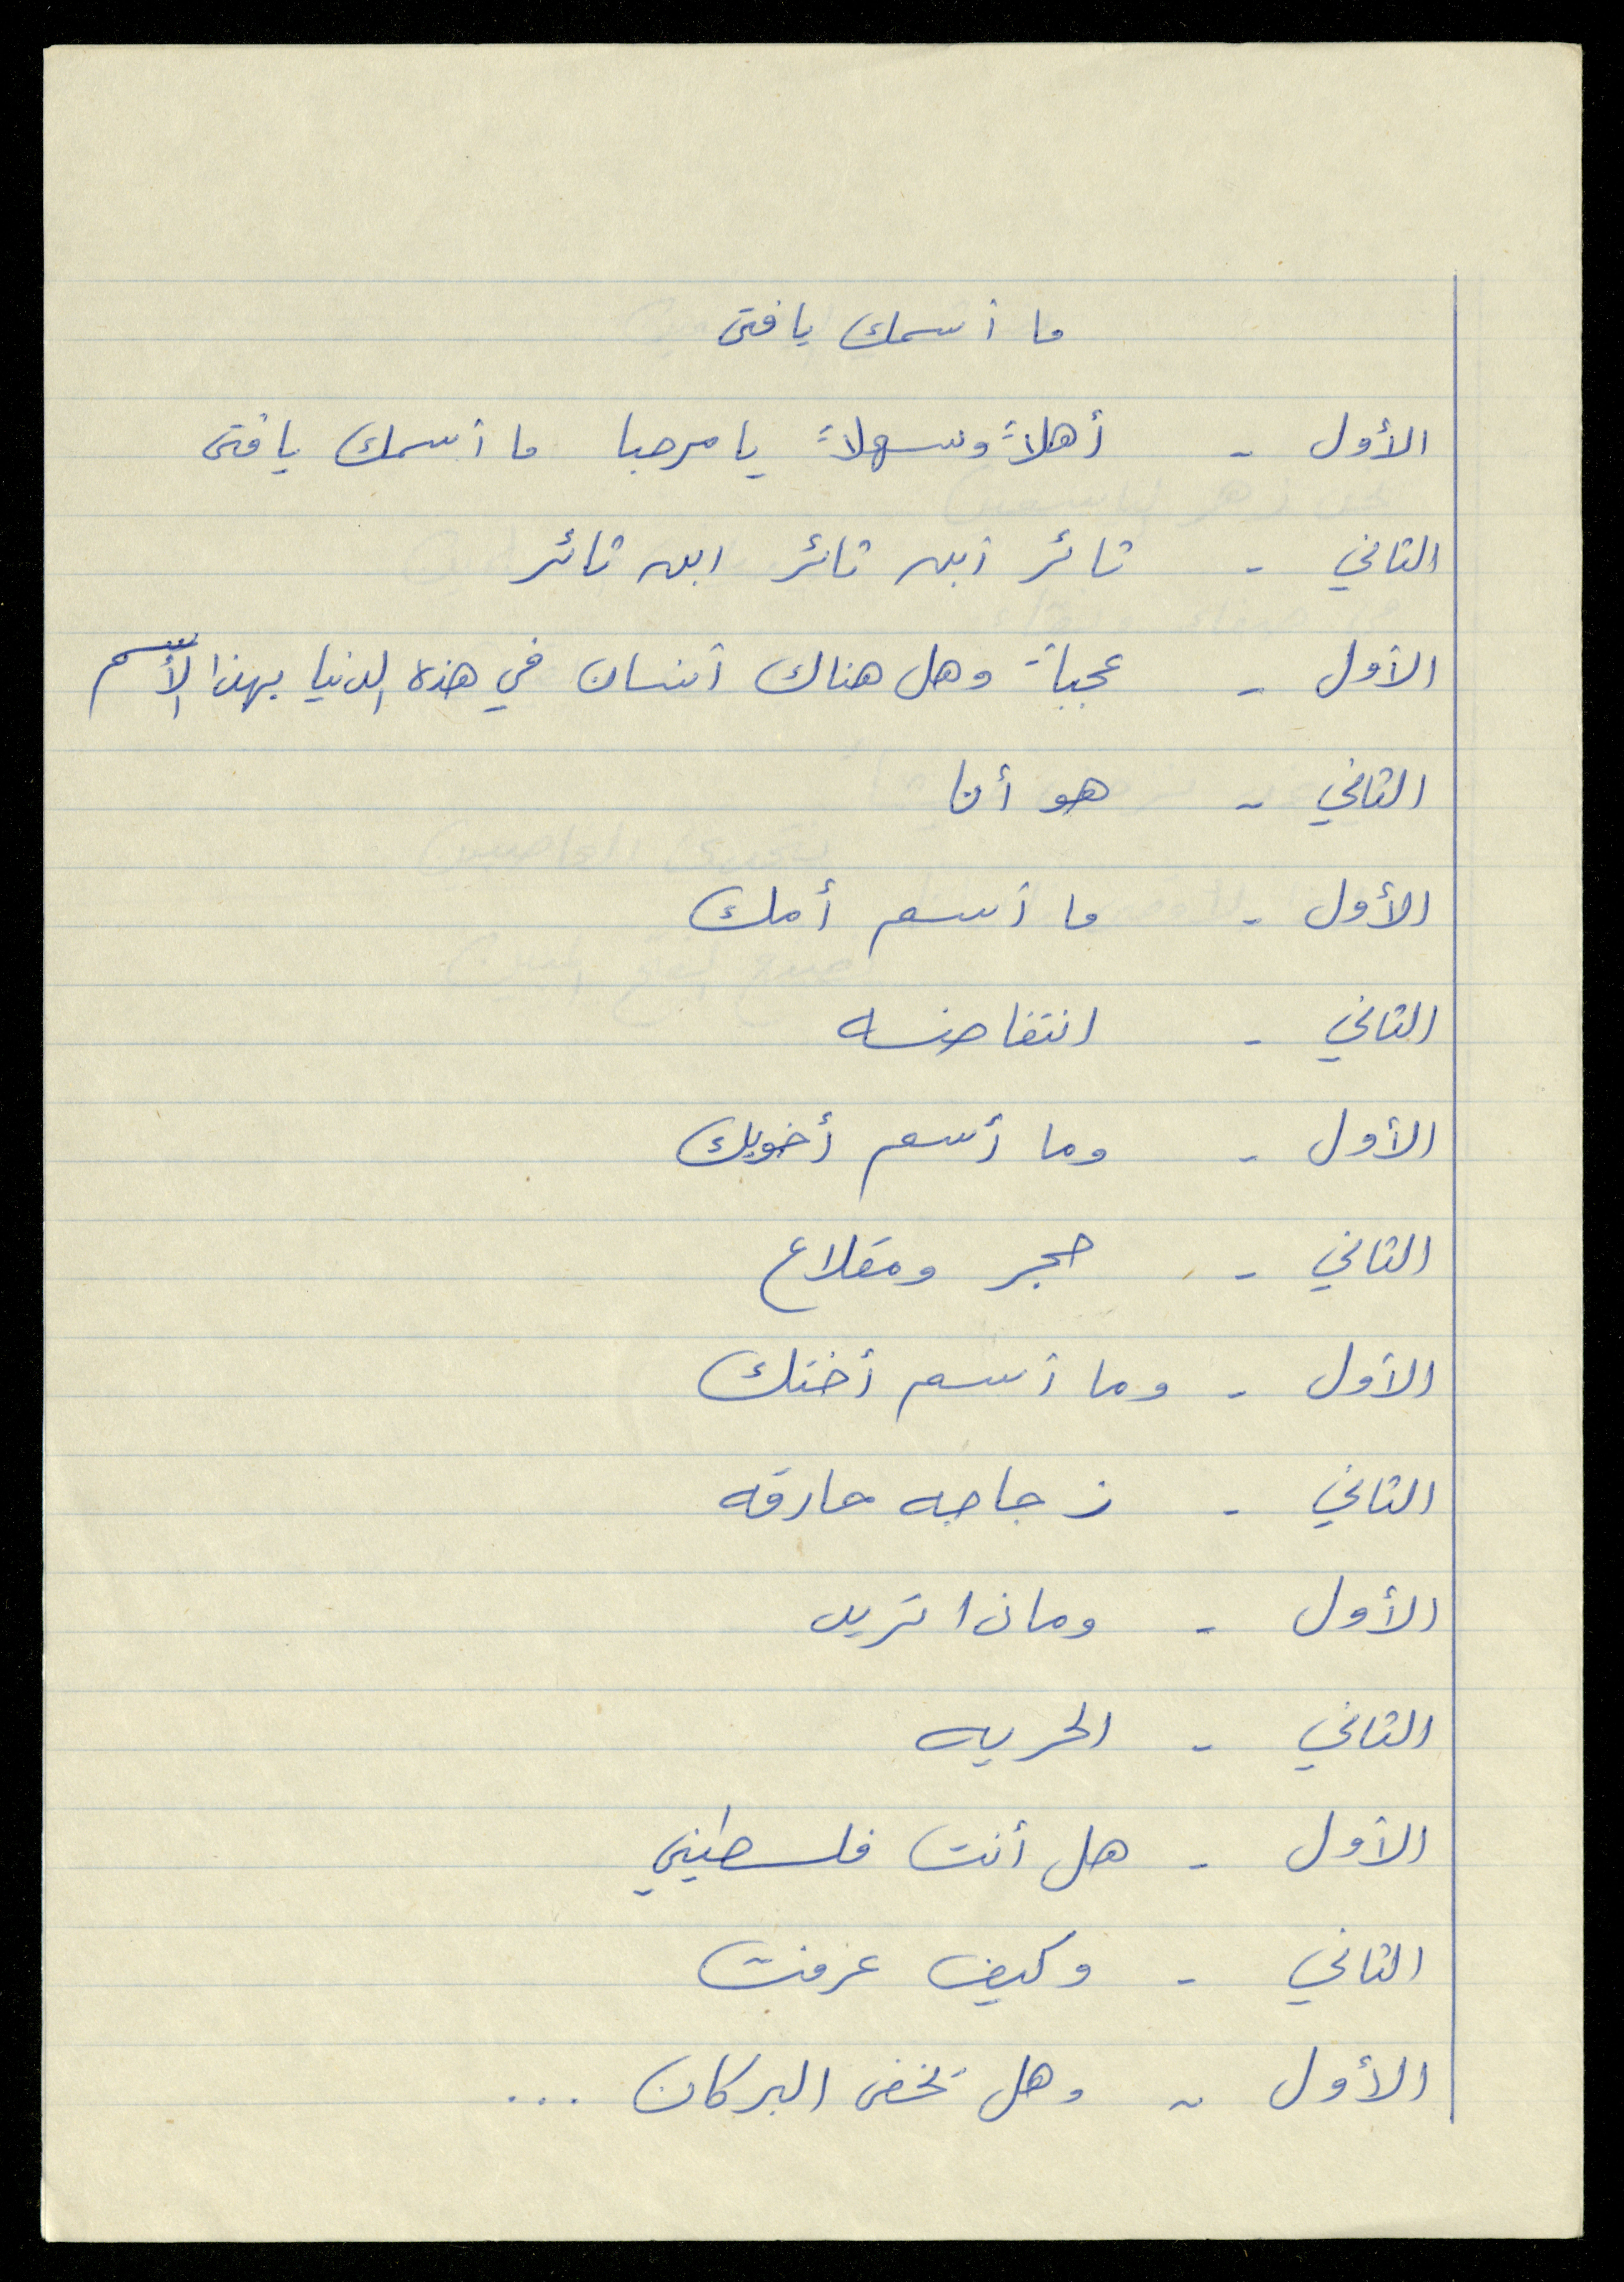 ما أسمك يا فتى
الأول - أهلاً وسهلاً يا مرحبا ما أسمك يا فتى
الثاني - ثائر أبن ثائر ابن ثائر
الأول - عجباً وهل هناك أنسان في هذه الدنيا بهذا الأسم
الثاني - هو أنا
الأول - ما أسم أمك
الثاني - انتفاضه
الأول - وما أسم أخويك
الثاني - حجر ومقلاع
الأول - وما أسم أختك
الثاني - زجاجه حارقه
الأول - وماذا تريد
الثاني - الحريه
الأول - هل أنت فلسطيني
الثاني - وكيف عرفت
الأول - وهل تخفى البركان ...